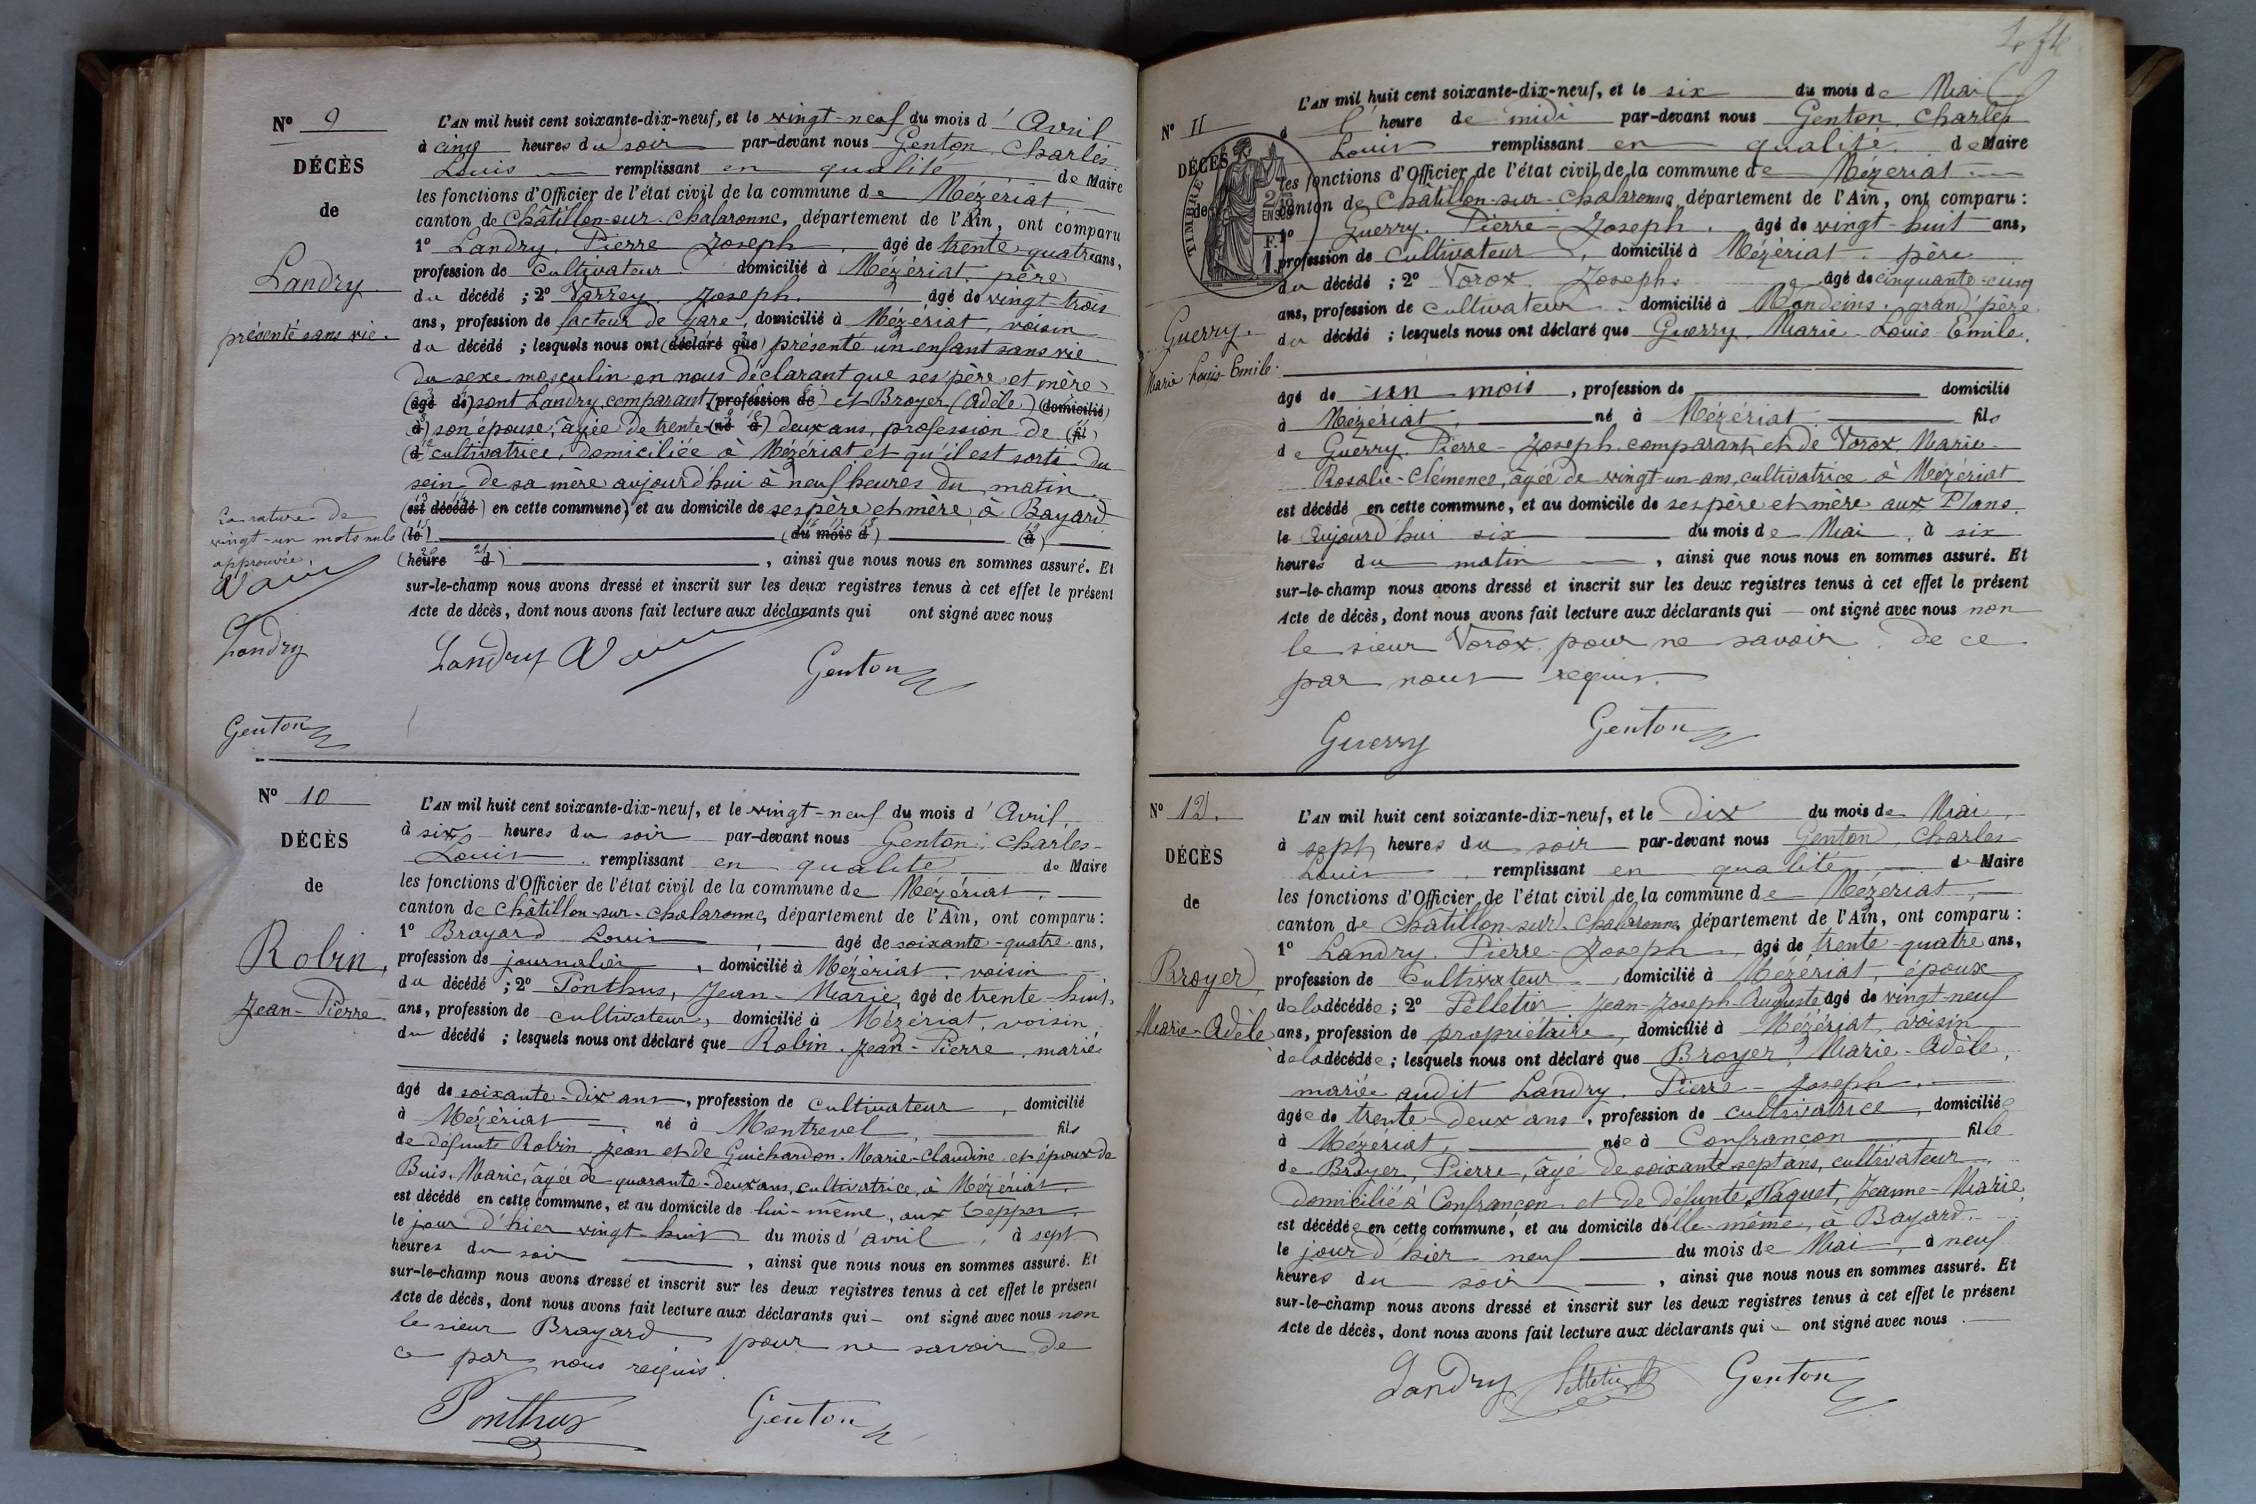 Nº 9
DÉCÈS
de
Landry
présenté sans vie.
La rature de
vingt-un mots nuls
approuvée.
Landry
Genton
L'AN mil huit cent soixante-dix-neuf, et le vingt-neuf du mois d' Avril
à cinq heures du soir par-devant nous Genton, Charles
Louis remplissant en qualité de Maire
les fonctions d'Officier de l'état civil de la commune de Mézériat
canton de Châtillon-sur-Chalaronne, département de l'Ain, ont comparu
1º Landry, Pierre Joseph, âgé de trente-quatre ans,
profession de Cultivateur domicilié à Mézériat, père
du décédé ; 2º Varrey, Joseph, âgé de vingt-trois
ans, profession de facteur de gare, domicilié à Mézériat, voisin
du décédé ; lesquels nous ont (déclaré que) présenté un enfant sans vie
du sexe masculin en nous déclarant que ses père et mère
(âgé de) sont Landry, comparant (profession de) et Broyer (Adèle) (domicilié)
à) son épouse, âgée de trente (né à) deux ans, profession de (fil)
(d cultivatrice, domiciliée à Mézériat et qu'il est sorti du
sein de sa mère aujourd'hui à neuf heures du matin
(est décédé) en cette commune, et au domicile de ses père et mère, à Bayard
(le) (du mois d) (à)
(heure d) , ainsi que nous nous en sommes assuré. Et
sur-le-champ nous avons dressé et inscrit sur les deux registres tenus à cet effet le présent
Acte de décès, dont nous avons fait lecture aux déclarants qui ont signé avec nous
Landry Genton
Nº 10
DÉCÈS
de
Robin,
Jean-Pierre
L'AN mil huit cent soixante-dix-neuf, et le vingt-neuf du mois d' Avril,
à six heures du soir par-devant nous Genton, Charles-
Louis remplissant en qualité de Maire
les fonctions d'Officier de l'état civil de la commune de Mézériat,
canton de Châtillon-sur-Chalaronne, département de l'Ain, ont comparu :
1º Brayard Louis, âgé de soixante-quatre ans,
profession de journalier, domicilié à Mézériat, voisin
du décédé ; 2º Ponthus, Jean-Marie, âgé de trente-huit
ans, profession de cultivateur, domicilié à Mézériat, voisin,
du décédé ; lesquels nous ont déclaré que Robin, Jean-Pierre, marié
âgé de soixante-dix ans, profession de cultivateur, domicilié
à Mézériat, né à Montrevel, fils
de défunts Robin Jean et de Guichardon Marie-Claudine et époux de
Buis, Marie, âgée de quarante-deux ans, cultivatrice, à Mézériat,
est décédé en cette commune, et au domicile de lui-même, aux Teppes,
le jour d'hier vingt-huit du mois d' avril, à sept
heures du soir , ainsi que nous nous en sommes assuré. Et
sur-le-champ nous avons dressé et inscrit sur les deux registres tenus à cet effet le présent
Acte de décès, dont nous avons fait lecture aux déclarants qui – ont signé avec nous non
le sieur Brayard pour ne savoir de
ce par nous requis.
Ponthus Genton
Nº 11
DÉCÈS
de
TIMBRE
Guerry.
Marie Louis-Emile.
L'AN mil huit cent soixante-dix-neuf, et le six du mois de Mai
à l' heure de midi par-devant nous Genton, Charles
Louis remplissant en qualité de Maire
les fonctions d'Officier de l'état civil de la commune de Mézériat
canton de Châtillon-sur-Chalaronne, département de l'Ain, ont comparu :
1º Guerry, Pierre-Joseph, âgé de vingt-huit ans,
profession de Cultivateur, domicilié à Mézériat, père
du décédé ; 2º Vorox, Joseph, âgé de cinquante-cinq
ans, profession de cultivateur domicilié à Vandeins, grand'père
du décédé ; lesquels nous ont déclaré que Guerry, Marie-Louis-Emile,
âgé de un mois, profession de domicilié
à Mézériat, né à Mézériat fils
de Guerry, Pierre-Joseph, comparant, et de Vorox, Marie-
Rosalie-Clémence, âgée de vingt-un ans, cultivatrice à Mézériat
est décédé en cette commune, et au domicile de ses père et mère aux Plans,
le aujourd'hui six du mois de Mai, à six
heures du matin , ainsi que nous nous en sommes assuré. Et
sur-le-champ nous avons dressé et inscrit sur les deux registres tenus à cet effet le présent
Acte de décès, dont nous avons fait lecture aux déclarants qui – ont signé avec nous non
le sieur Vorox pour ne savoir de ce
par nous requis.
Guerry Genton
Nº 12.
DÉCÈS
de
Broyer,
Marie-Adèle
L'AN mil huit cent soixante-dix-neuf, et le dix du mois de Mai,
à sept heures du soir par-devant nous Genton, Charles-
Louis remplissant en qualité de Maire
les fonctions d'Officier de l'état civil de la commune de Mézériat,
canton de Châtillon-sur-Chalaronne, département de l'Ain, ont comparu :
1º Landry, Pierre-Joseph, âgé de trente-quatre ans,
profession de Cultivateur, domicilié à Mézériat, époux
de la décédée ; 2º Pelletier Jean-Joseph-Auguste âgé de vingt-neuf
ans, profession de propriétaire, domicilié à Mézériat, voisin
de la décédée ; lesquels nous ont déclaré que Broyer, Marie-Adèle,
mariée audit Landry, Pierre-Joseph,
âgée de trente-deux ans, profession de cultivatrice, domiciliée
à Mézériat, née à Confrançon fille
de Broyer, Pierre, âgé de soixante-sept ans, cultivateur
domicilié à Confrançon et de défunte Paquet, Jeanne-Marie,
est décédée en cette commune, et au domicile d'elle-même, à Bayard,
le jour d'hier neuf du mois de Mai, à neuf
heures du soir , ainsi que nous nous en sommes assuré. Et
sur-le-champ nous avons dressé et inscrit sur les deux registres tenus à cet effet le présent
Acte de décès, dont nous avons fait lecture aux déclarants qui – ont signé avec nous
Landry Pelletier Genton